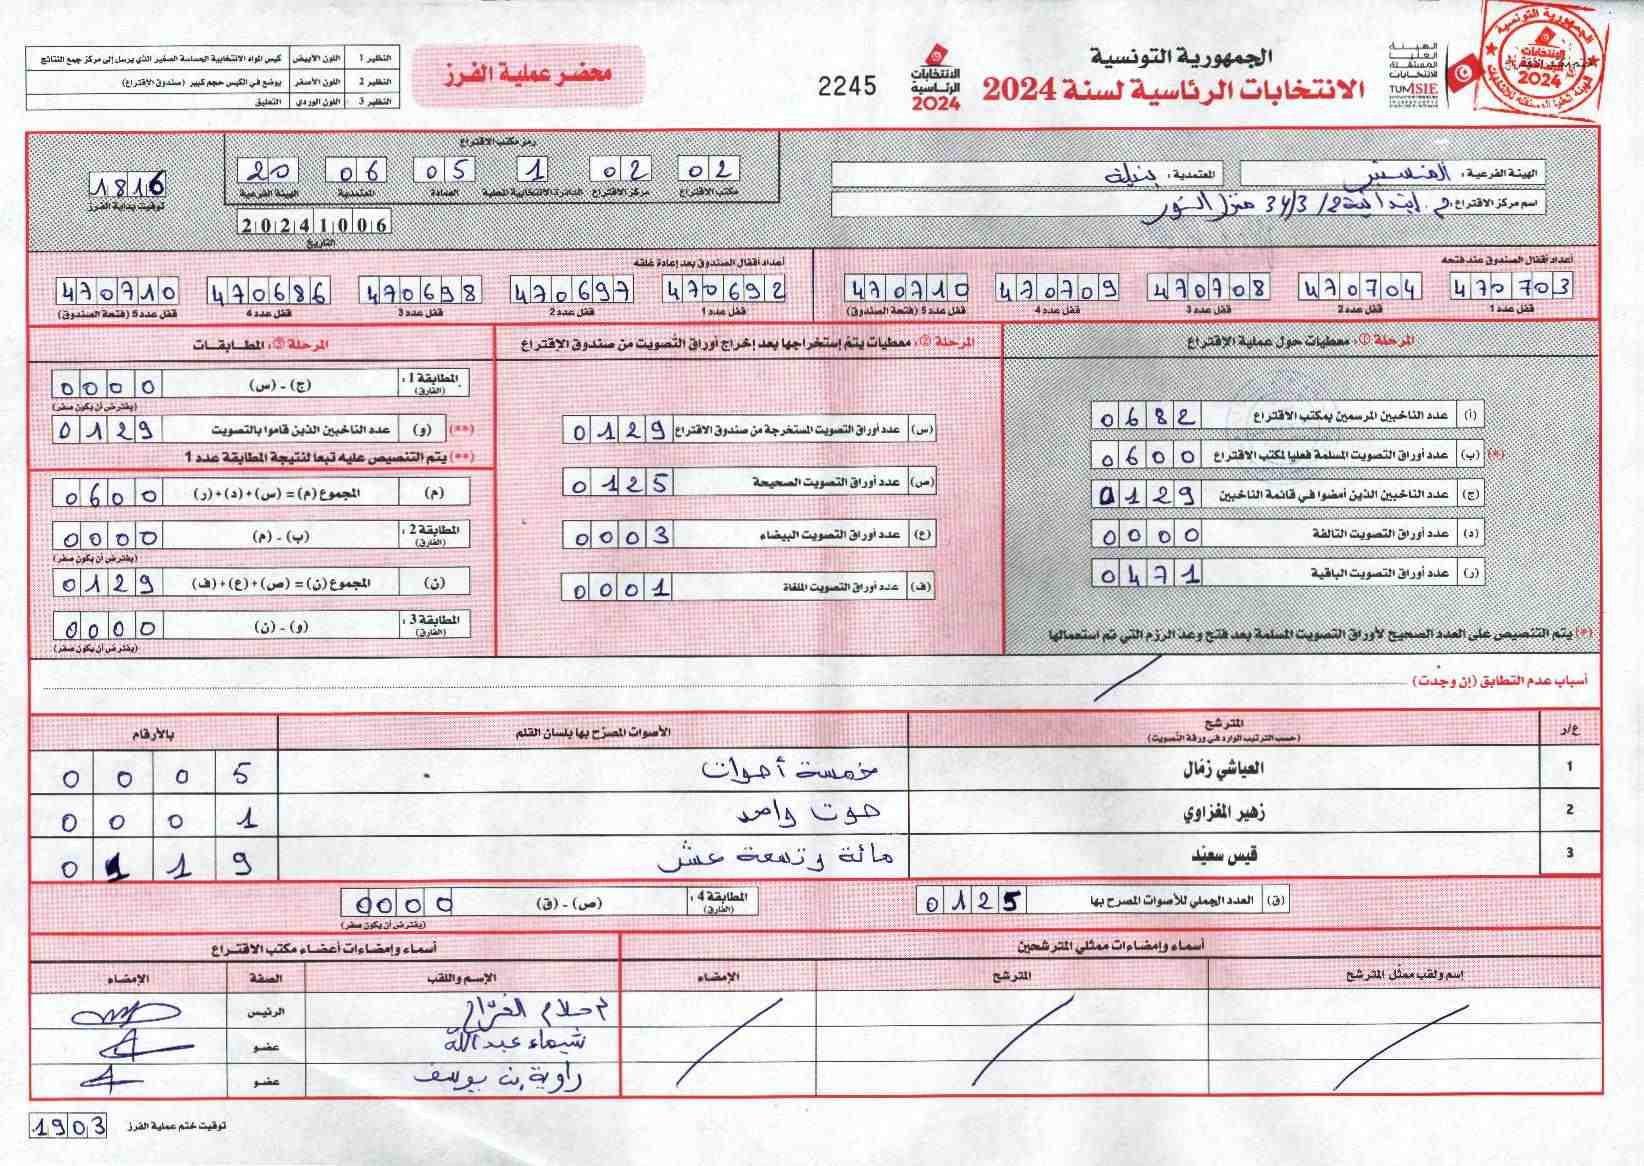 النظير 1 اللون الأبيض كيس المواد الانتخابية الحساسة الصغير الذي يرسل إلى مركز جمع النتائج
النظير 2 اللون الأصفر يوضع في الكيس حجم كبير (صندوق الاقتراع)
النظير 3 اللون الوردي التعليق
محضر عملية الفرز
2245
الانتخابات الرئاسية 2024
الجمهورية التونسية
الانتخابات الرئاسية لسنة 2024
الهيئة العليا المستقلة للانتخابات
TUNISIE
الجمهورية التونسية
الانتخابات
2024
الهيئة الفرعية: المنستير
المعتمدية: بنبلة
اسم مركز الاقتراع: م. إبتدائية 2/ 3/ 34 منزل النور
رمز مكتب الاقتراع
02 02 1 05 06 20
مكتب الاقتراع مركز الاقتراع الدائرة الانتخابية المحلية العمادة المعتمدية الهيئة الفرعية
20241006
التاريخ
1816
توقيت بداية الفرز
أعداد أقفال الصندوق عند فتحه
470703 470704 470708 470709 470710
قفل عدد 1 قفل عدد 2 قفل عدد 3 قفل عدد 4 قفل عدد 5 (فتحة الصندوق)
أعداد أقفال الصندوق بعد إعادة غلقه
470692 470697 470698 470686 470710
قفل عدد 1 قفل عدد 2 قفل عدد 3 قفل عدد 4 قفل عدد 5 (فتحة الصندوق)
المرحلة ①: معطيات حول عملية الاقتراع
(أ) عدد الناخبين المرسمين بمكتب الاقتراع 0682
(*) (ب) عدد أوراق التصويت المسلمة فعليا لمكتب الاقتراع 0600
(ج) عدد الناخبين الذين أمضوا في قائمة الناخبين 0129
(د) عدد أوراق التصويت التالفة 0000
(ر) عدد أوراق التصويت الباقية 0471
(*) يتم التنصيص على العدد الصحيح لأوراق التصويت المسلمة بعد فتح وعد الرزم التي تم استعمالها
المرحلة ②: معطيات يتم إستخراجها بعد إخراج أوراق التصويت من صندوق الاقتراع
(س) عدد أوراق التصويت المستخرجة من صندوق الاقتراع 0129
(ص) عدد أوراق التصويت الصحيحة 0125
(ع) عدد أوراق التصويت البيضاء 0003
(ف) عدد أوراق التصويت الملغاة 0001
المرحلة ③: المطابقات
المطابقة 1: (الفارق) (ج) - (س) 0000
(يفترض أن يكون صفر)
(**) (و) عدد الناخبين الذين قاموا بالتصويت 0129
(**) يتم التنصيص عليه تبعا لنتيجة المطابقة عدد 1
(م) المجموع (م) = (س)+(د)+(ر) 0600
المطابقة 2: (الفارق) (ب) - (م) 0000
(يفترض أن يكون صفر)
(ن) المجموع (ن) = (ص)+(ع)+(ف) 0129
المطابقة 3: (الفارق) (و) - (ن) 0000
(يفترض أن يكون صفر)
أسباب عدم التطابق (إن وجدت)
ع/ر المترشح (حسب الترتيب الوارد في ورقة التصويت) الأصوات المصرّح بها بلسان القلم بالأرقام
1 العياشي زمّال خمسة أصوات 0005
2 زهير المغزاوي صوت واحد 0001
3 قيس سعيّد مائة وتسعة عشر 0119
(ق) العدد الجملي للأصوات المصرح بها 0125
المطابقة 4: (الفارق) (ص) - (ق) 0000
(يفترض أن يكون صفر)
أسماء وإمضاءات ممثلي المترشحين
اسم ولقب ممثل المترشح المترشح الإمضاء
أسماء وإمضاءات أعضاء مكتب الاقتراع
الإسم واللقب الصفة الإمضاء
الرئيس
شيماء عبد الله عضو
راوية بن يوسف عضو
توقيت ختم عملية الفرز 1903